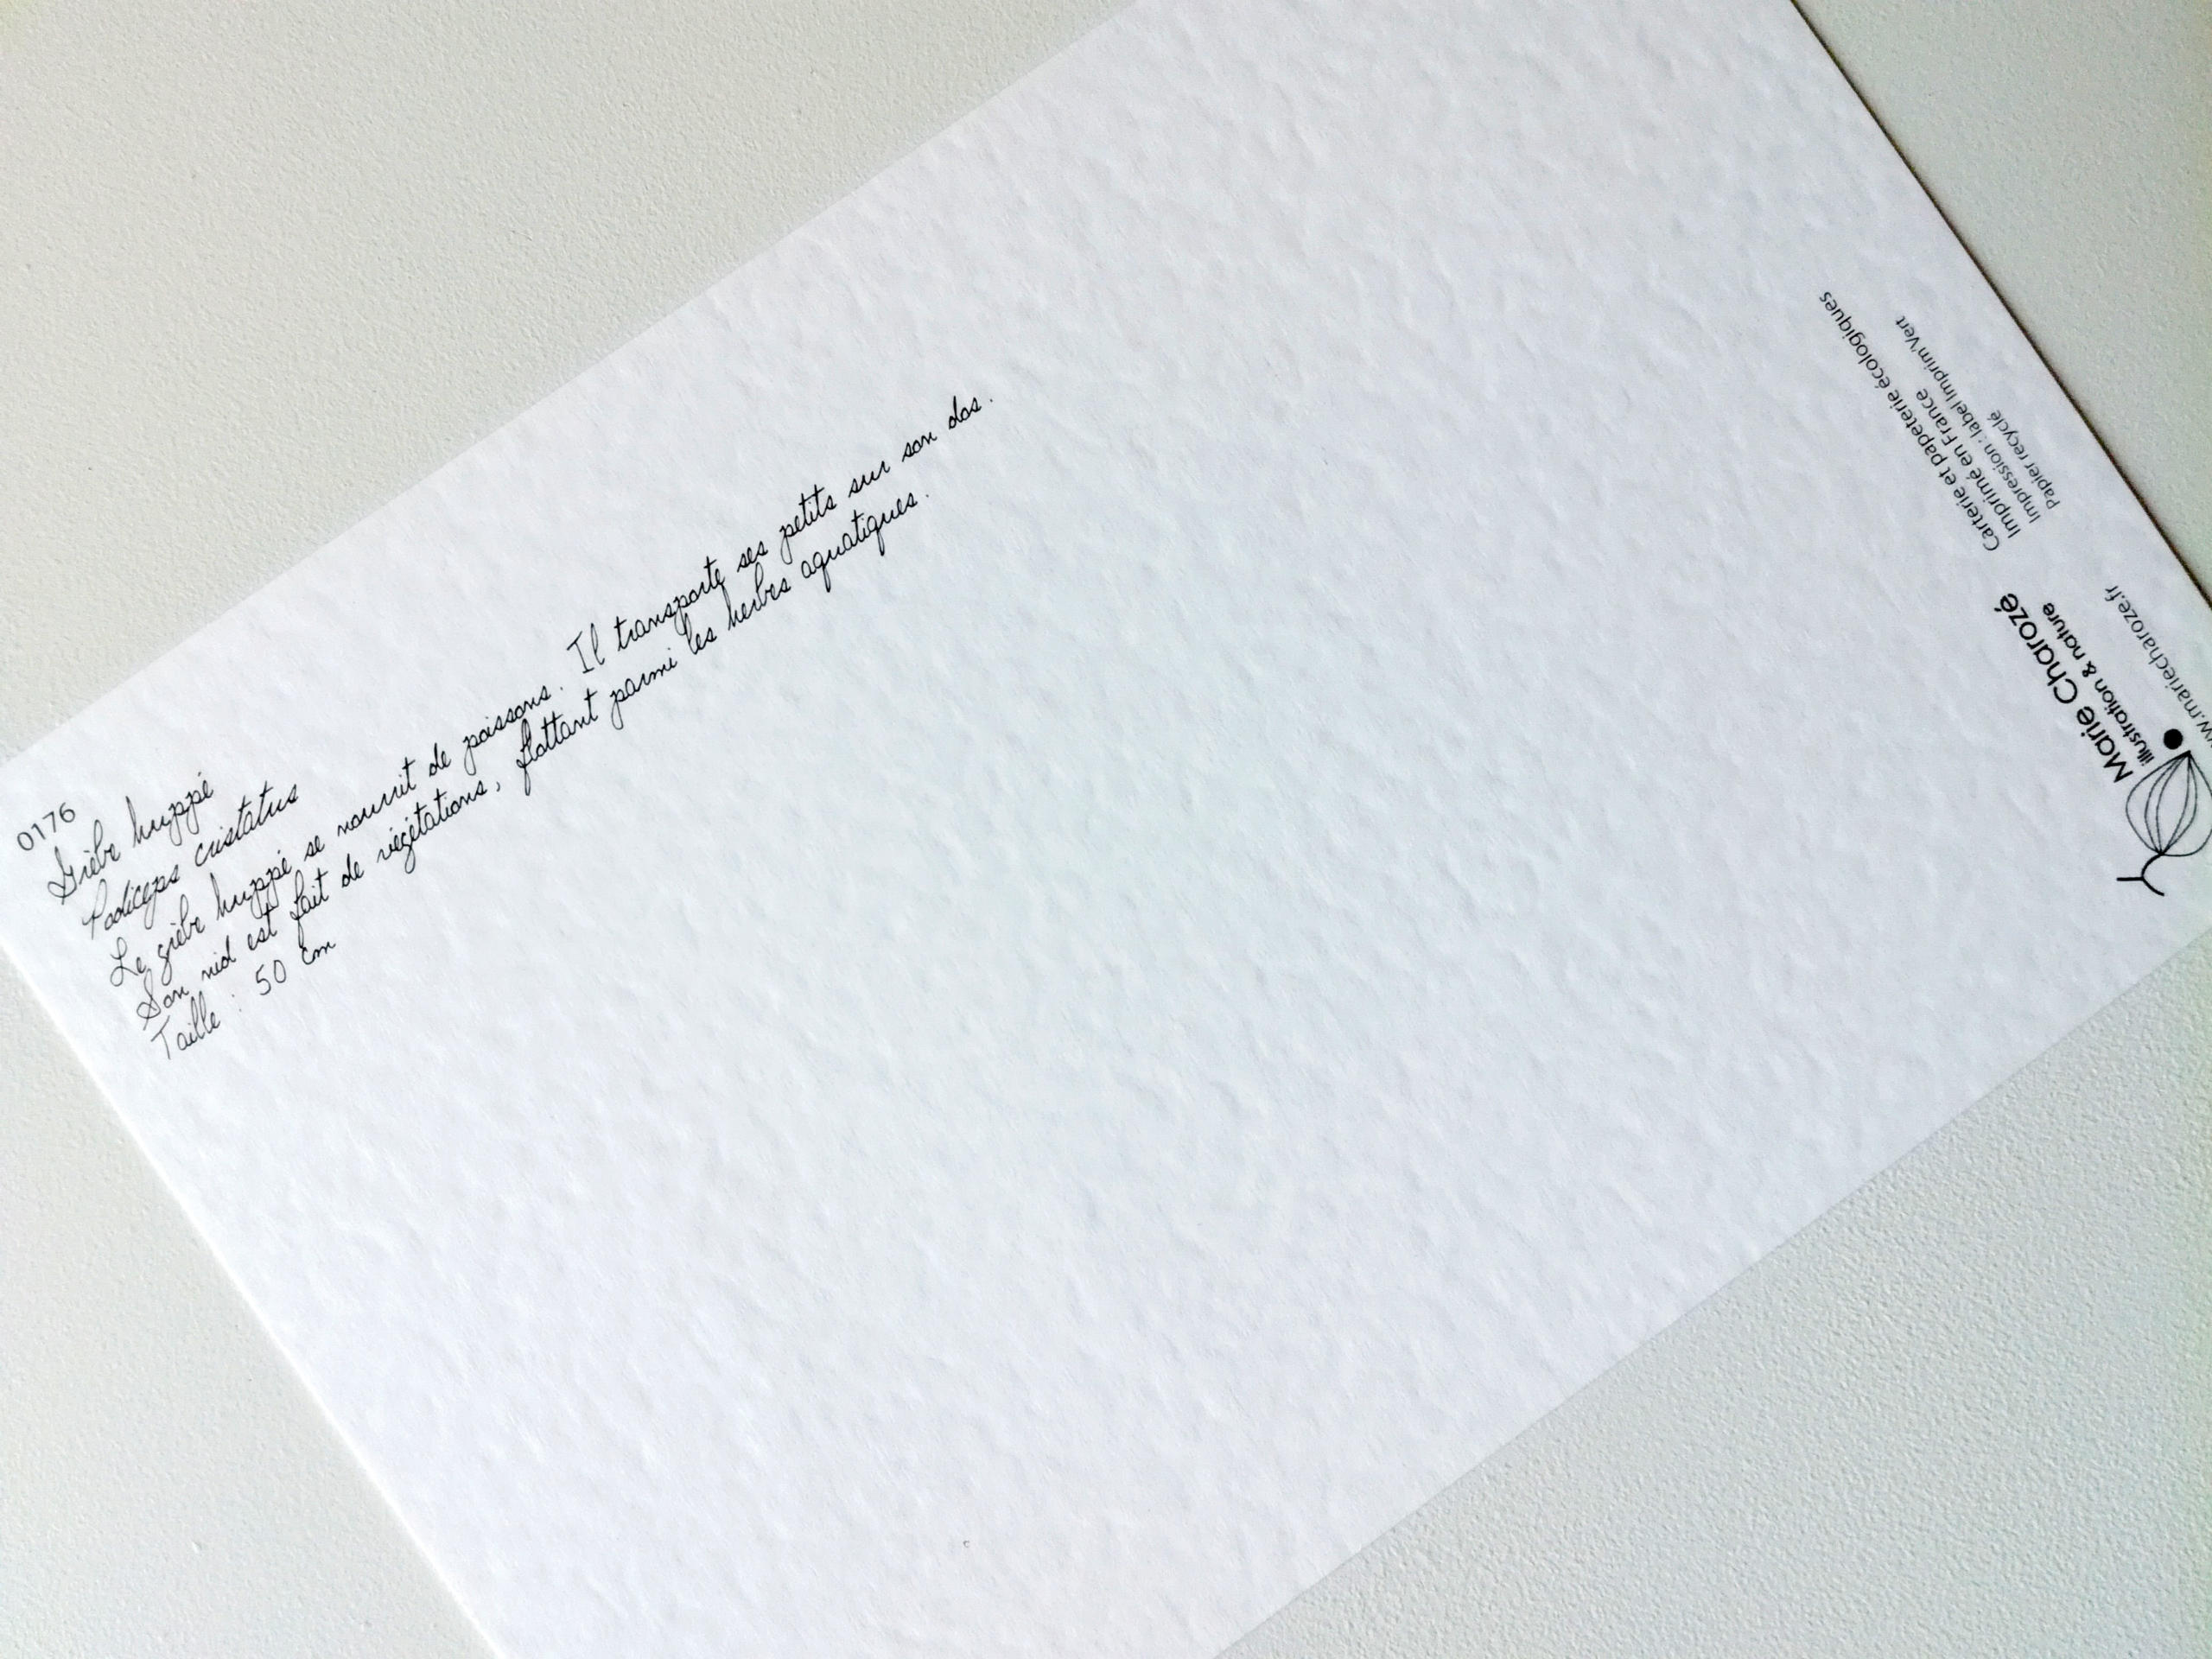 0176
Grèbe huppé
Podiceps cristatus
Le grèbe huppé se nourrit de poissons. Il transporte ses petits sur son dos.
Son nid est fait de végétations, flottant parmi les herbes aquatiques.
Taille : 50 cm
Marie Charozé
illustration & nature
w.mariecharoze.fr
Carterie et papeterie écologiques
Imprimé en France
Impression : label Imprim'Vert
Papier recyclé